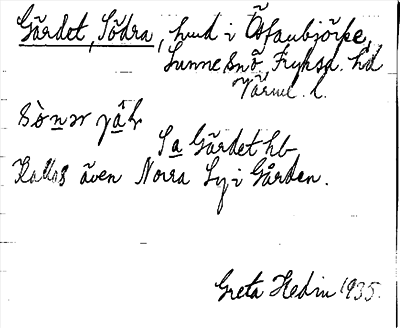 Gärdet, Södra, hmd i Östanbjörke,
Sunne sn, Fryksd. hd
Värml. l.
Sa Gärdet hb
Kallas även Norra Ly i Gården.
Greta Hedin 1935.